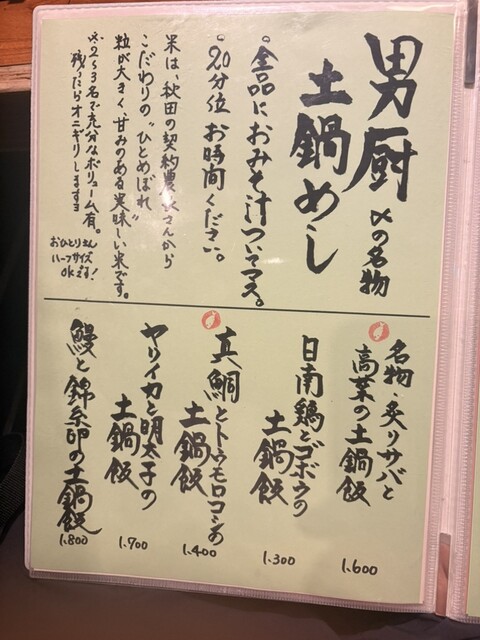 男厨 〆の名物
土鍋めし
◦全品におみそ汁ついてマス。
◦20分位 お時間ください。
米は、秋田の契約農家さんから
こだわりの"ひとめぼれ"
粒が大きく甘みのある美味しい米です。
※2〜3名で充分なボリューム有。
残ったらオニギリしますョ
おひとりさん
ハーフサイズ
OKです!
名物・炙りサバと
高菜の土鍋飯
1.600
日南鶏とゴボウの
土鍋飯
1.300
真鯛とトウモロコシの
土鍋飯
1.400
ヤリイカと明太子の
土鍋飯
1.700
鰻と錦糸卵の土鍋飯
1.800